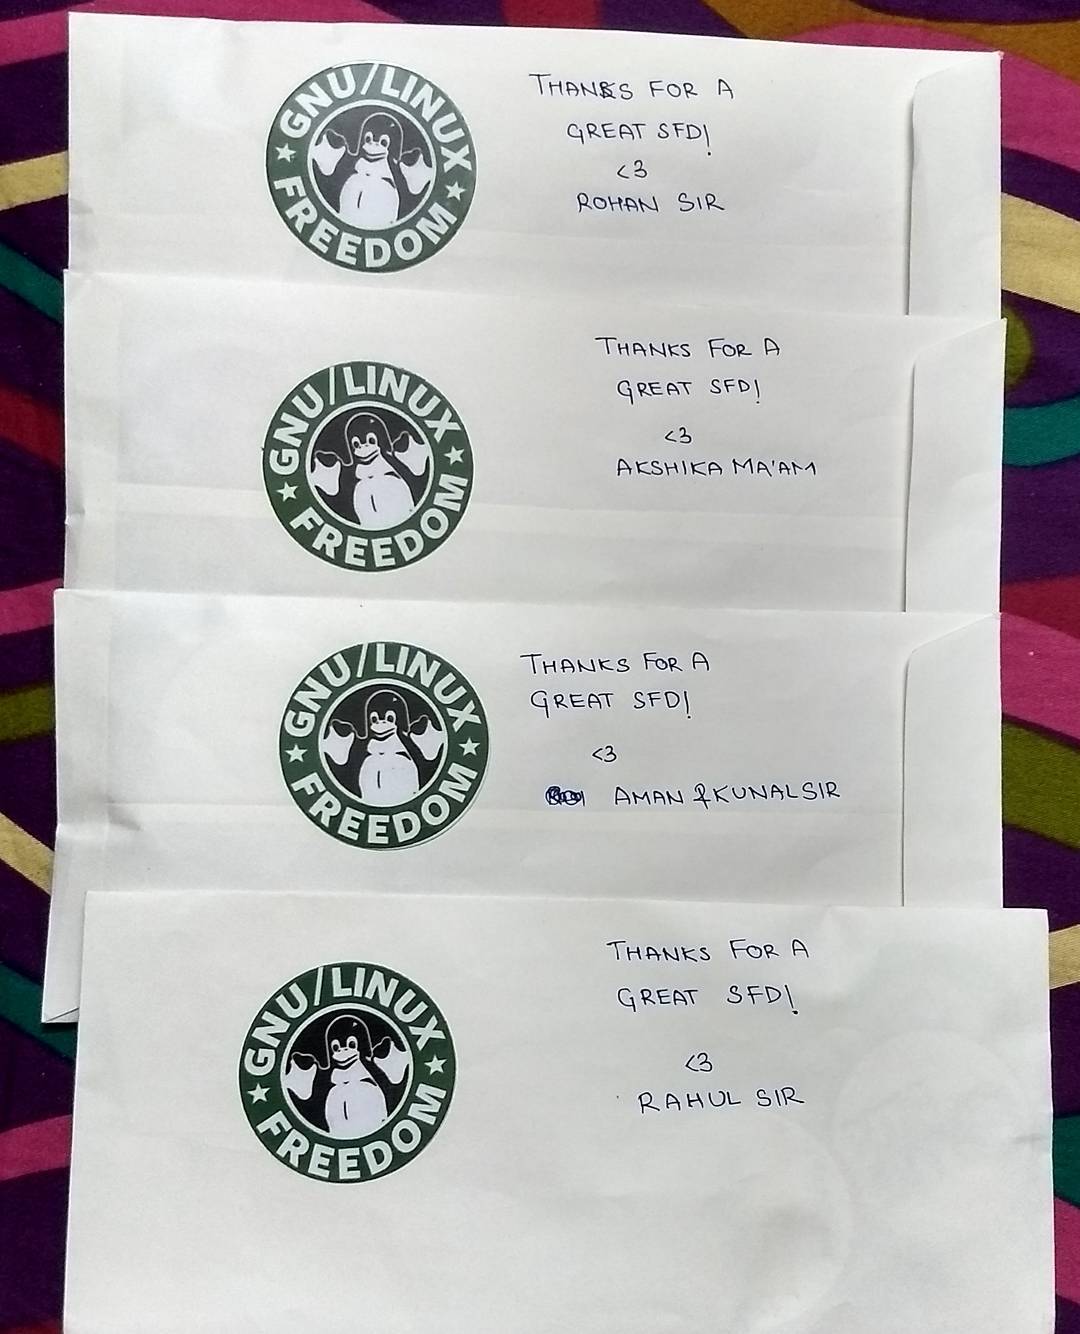 GNU/LINUX
FREEDOM
THANKS FOR A
GREAT SFD!
<3
ROHAN SIR
GNU/LINUX
FREEDOM
THANKS FOR A
GREAT SFD!
<3
AKSHIKA MA'AM
GNU/LINUX
FREEDOM
THANKS FOR A
GREAT SFD!
<3
AMAN & KUNAL SIR
GNU/LINUX
FREEDOM
THANKS FOR A
GREAT SFD!
<3
RAHUL SIR